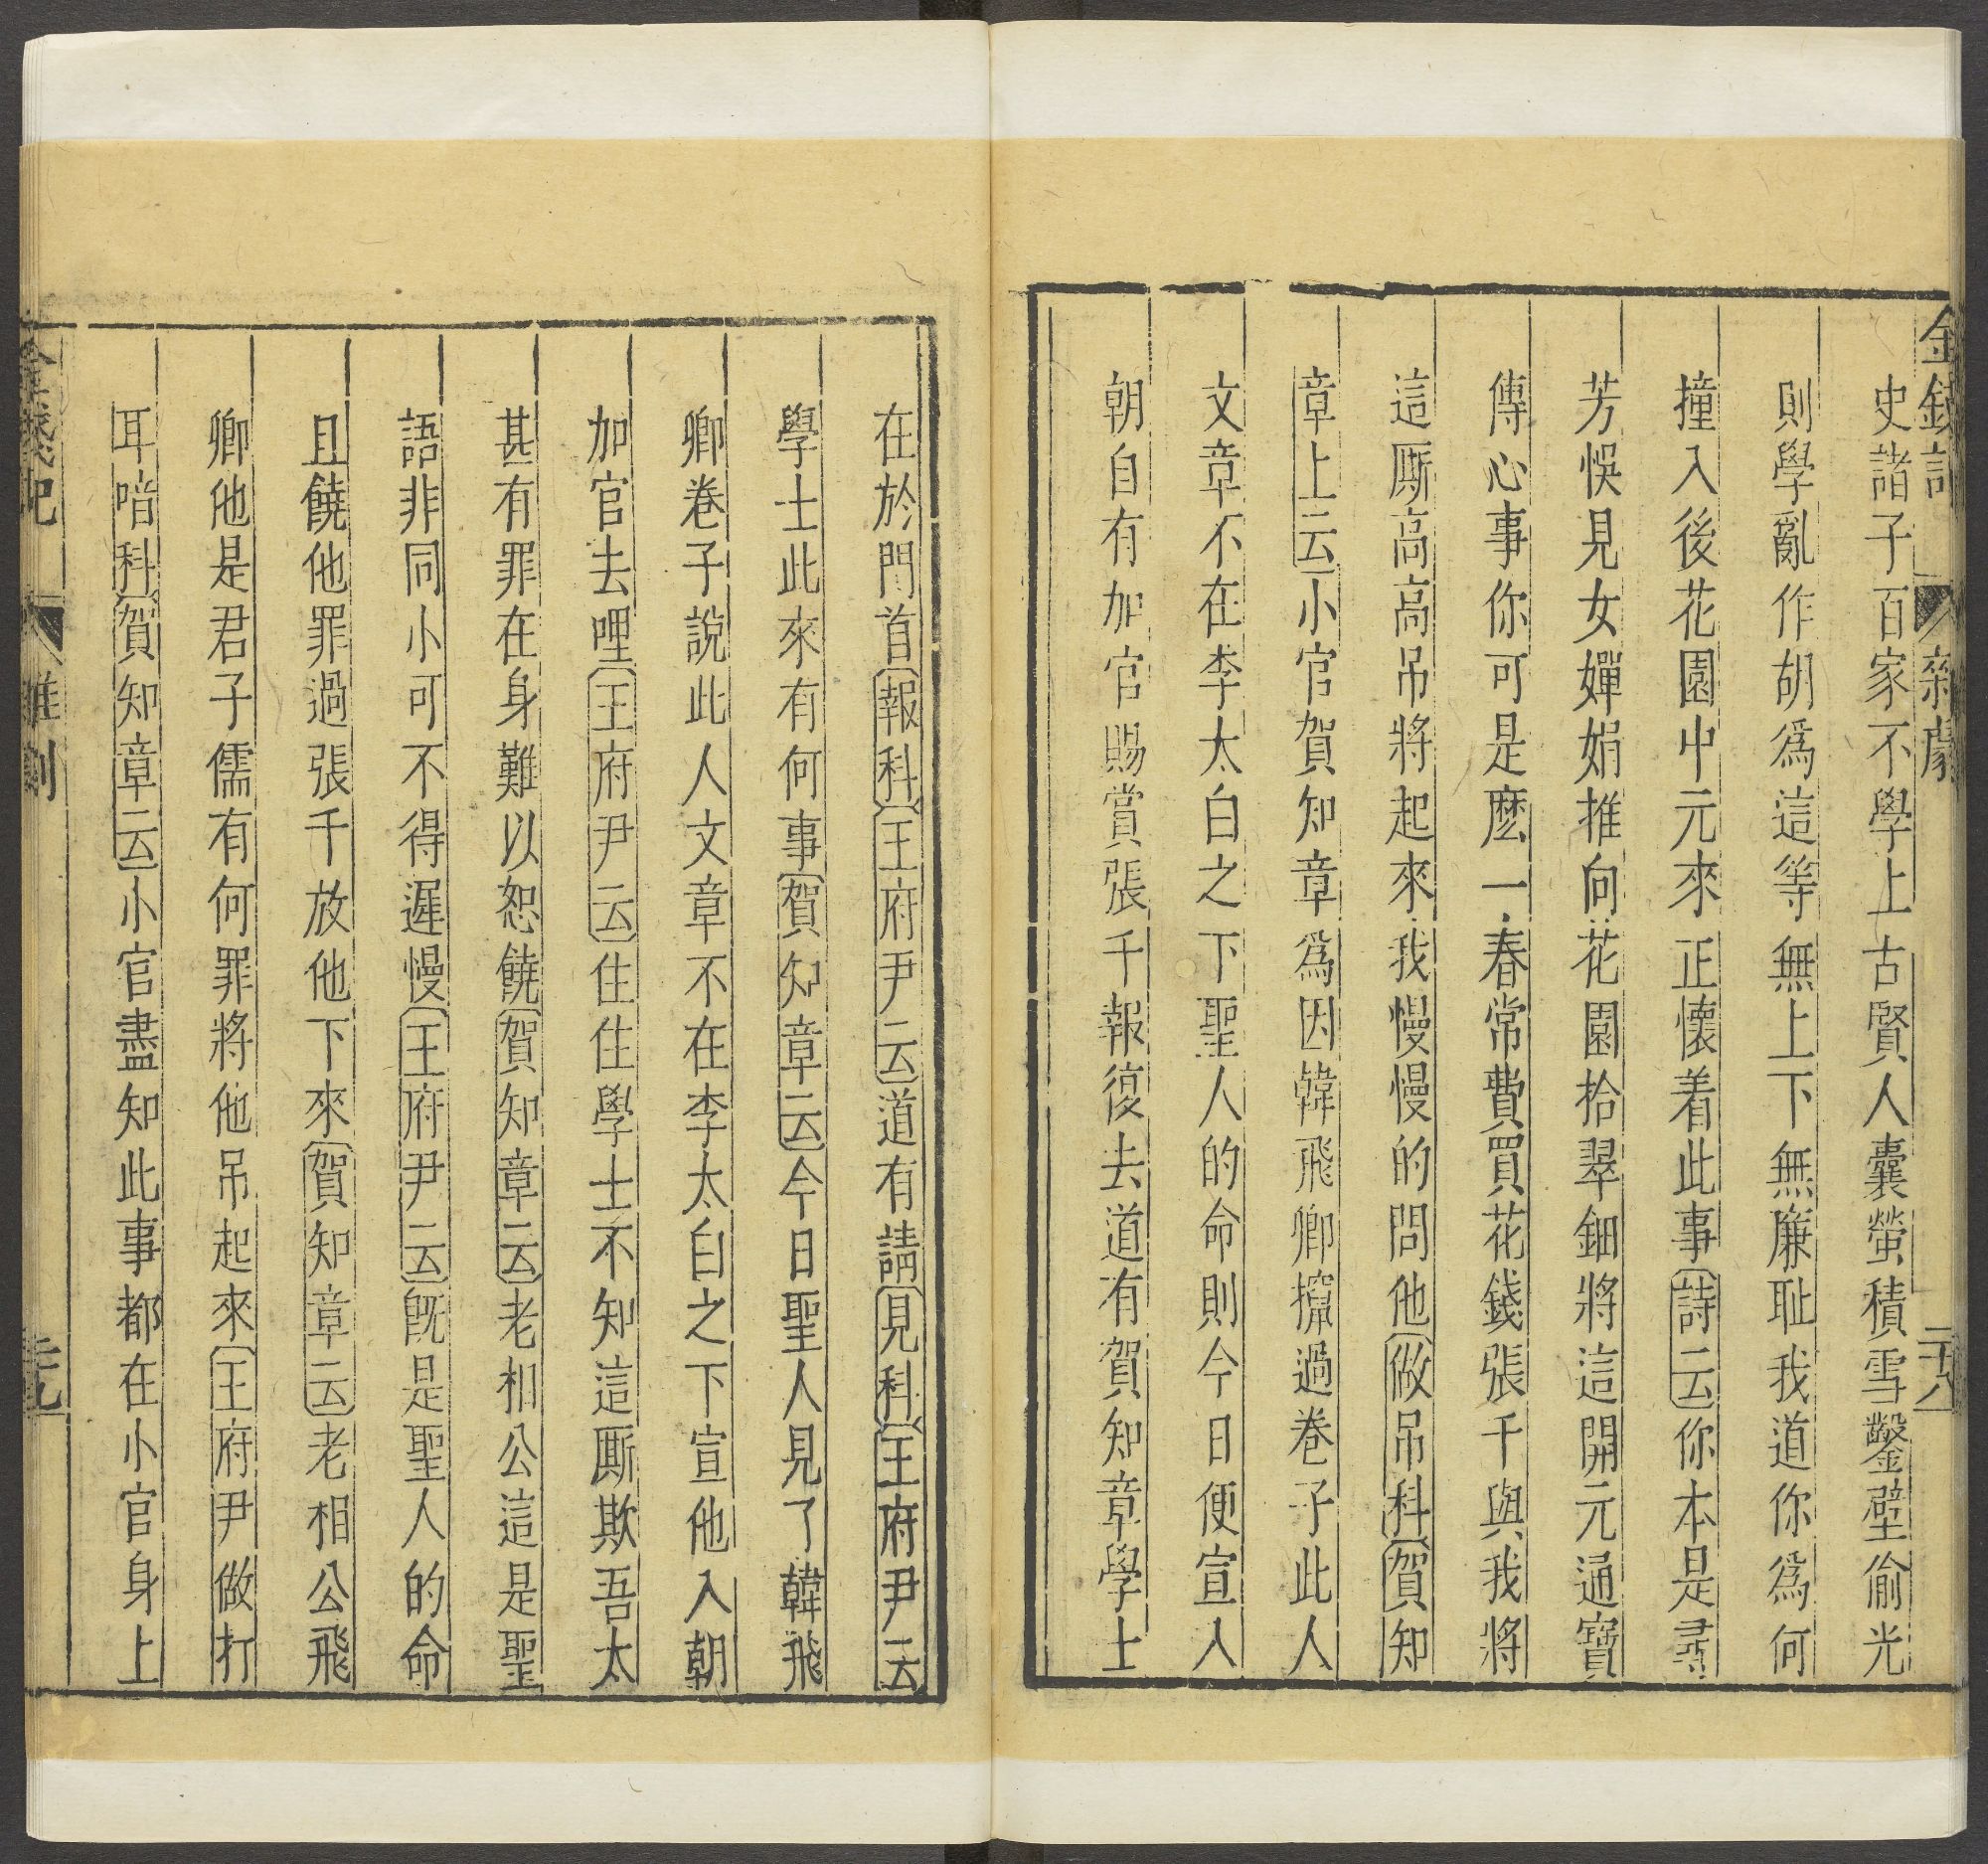 史諸子百家不學上古賢人囊螢積雪鑿壁偷光
則學亂作胡爲這等無上下無廉耻我道你爲何
撞入後花園中元來正懷着此事詩云你本是尋
芳悞見女嬋娟推向花園拾翠鈿將這開元通寶
傳心事你可是麽一春常費買花錢張千與我將
這厮高高吊將起來我慢慢的問他做吊科賀知
章上云小官賀知章爲因韓飛卿攛過卷子此人
文章不在李太白之下聖人的命則今日便宣入
朝自有加官賜賞張千報復去道有賀知章學士
在於門首報科王府尹云道有請見科王府尹云
學士此來有何事賀知章云今日聖人見了韓飛
卿卷子說此人文章不在李太白之下宣他入朝
加官去哩王府尹云住住學士不知這厮欺吾太
甚有罪在身難以恕饒賀知章云老相公這是聖
語非同小可不得遲慢王府尹云旣是聖人的命
且饒他罪過張千放他下來賀知章云老相公飛
卿他是君子儒有何罪將他吊起來王府尹做打
耳喑科賀知章云小官盡知此事都在小官身上